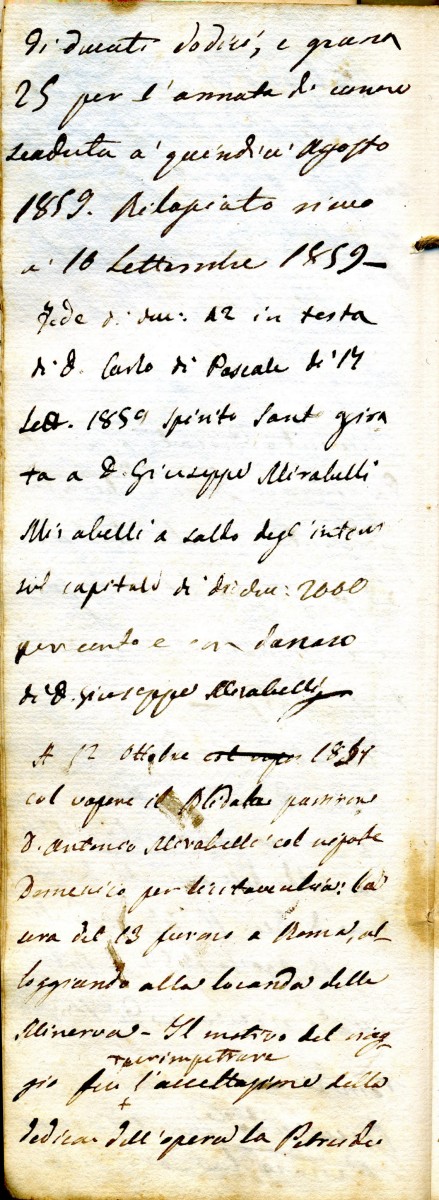 di ducati dodici, e grana
25 per l'annata di canone
scaduta a' quindici Agosto
1859. Rilasciato
a' 16 Settembre 1859 —
Fede di duc: 12 in testa
di D. Carlo di Pascale di 17
Sett. 1859 Spirito Santo gira
ta a D. Giuseppe Mirabelli
Mirabelli a saldo degl'interessi
sul capitale di duc: 2000
per conto e con danaro
di D. Giuseppe Mirabelli
A 12 Ottobre col vapor 1857
col vapore il partirono
D. Antonio Mirabelli col nipote
Domenico per Civitavecchia: la
sera del 13 furono a Roma, al
loggiando alla locanda della
Minerva — Il motivo del viag
+ per impetrare
gio fu + l'accettazione della
dedica dell'opera la